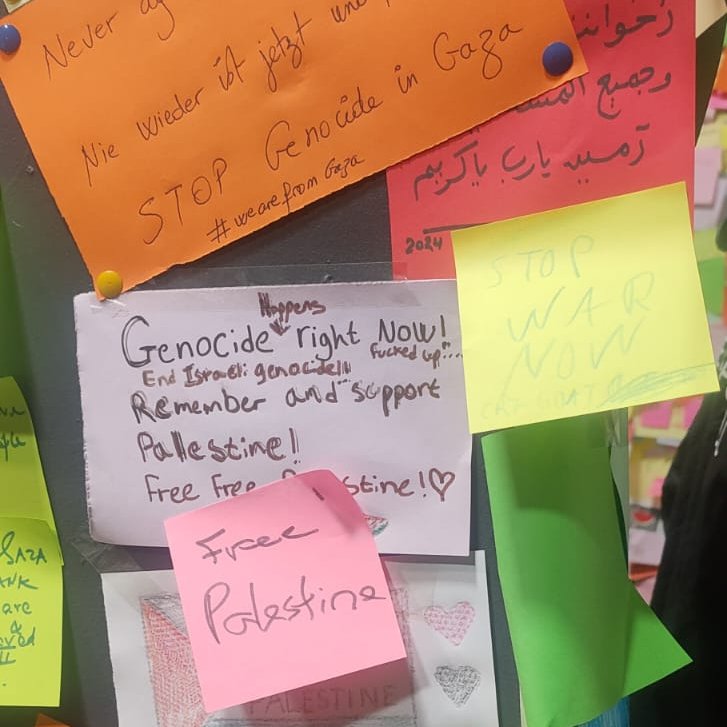 Never ag
Nie wieder ist jetzt und
STOP Genocide in Gaza
#wearefromGaza
وجميع
آمين يارب ياكريم
2024
STOP
WAR
NOW
Happens
Genocide right Now!
End Israeli genocide!! fucked up!...
Remember and support
Pallestine!
Free Free stine!♡
Free
Palestine
PALESTINE
GAZA
are